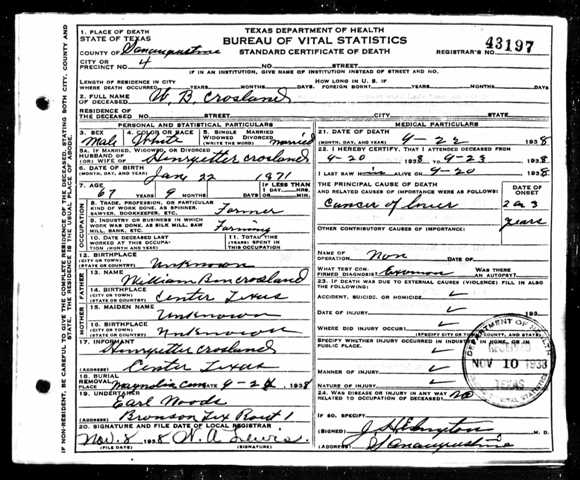 1. PLACE OF DEATH
STATE OF TEXAS
COUNTY OF Sanaugustine
CITY OR PRECINCT NO. 4
TEXAS DEPARTMENT OF HEALTH
BUREAU OF VITAL STATISTICS
STANDARD CERTIFICATE OF DEATH
REGISTRAR'S NO. 43197
NO. STREET
IF IN AN INSTITUTION, GIVE NAME OF INSTITUTION INSTEAD OF STREET AND NO.
LENGTH OF RESIDENCE IN CITY WHERE DEATH OCCURRED YEARS MONTHS DAYS
HOW LONG IN U. S. IF FOREIGN BORN? YEARS MONTHS DAYS
2. FULL NAME OF DECEASED W. B. Crosland
RESIDENCE OF THE DECEASED NO. STREET CITY STATE
PERSONAL AND STATISTICAL PARTICULARS
3. SEX Male
4. COLOR OR RACE White
5. SINGLE MARRIED WIDOWED DIVORCED (WRITE THE WORD) married
IF MARRIED, WIDOWED, OR DIVORCED
HUSBAND OF (OR) WIFE OF Henryetter Crosland
6. DATE OF BIRTH (MONTH, DAY, AND YEAR) Jan 22 1871
7. AGE 67 YEARS 9 MONTHS DAYS
IF LESS THAN 1 DAY HRS. MIN.
OCCUPATION
8. TRADE, PROFESSION, OR PARTICULAR KIND OF WORK DONE, AS SPINNER, SAWYER, BOOKKEEPER, ETC. Farmer
9. INDUSTRY OR BUSINESS IN WHICH WORK WAS DONE, AS SILK MILL, SAW MILL, BANK, ETC. Farming
10. DATE DECEASED LAST WORKED AT THIS OCCUPATION (MONTH AND YEAR)
11. TOTAL TIME (YEARS) SPENT IN THIS OCCUPATION
12. BIRTHPLACE (CITY OR TOWN) (STATE OR COUNTRY) Unknown
FATHER
13. NAME
14. BIRTHPLACE (CITY OR TOWN) (STATE OR COUNTRY) Center Texas
MOTHER
15. MAIDEN NAME Unknown
16. BIRTHPLACE (CITY OR TOWN) (STATE OR COUNTRY) Unknown
17. INFORMANT Henryetter Crosland
(ADDRESS) Center Texas
18. BURIAL REMOVAL PLACE Magnolia Cem 9-24 1938
19. UNDERTAKER Earl Woods
(ADDRESS) Bronson Tex Rout 1
20. SIGNATURE AND FILE DATE OF LOCAL REGISTRAR
Nov. 8 1938 W. A. Lewis
(FILE DATE) (SIGNATURE)
MEDICAL PARTICULARS
21. DATE OF DEATH (MONTH, DAY, AND YEAR) 9-22 1938
22. I HEREBY CERTIFY, THAT I ATTENDED DECEASED FROM 9-20 1938 TO 9-23 1938
I LAST SAW H ALIVE ON 9-20 1938
THE PRINCIPAL CAUSE OF DEATH AND RELATED CAUSES OF IMPORTANCE WERE AS FOLLOWS:
DATE OF ONSET
Cancer of
2 or 3 years
OTHER CONTRIBUTORY CAUSES OF IMPORTANCE:
NAME OF OPERATION Non DATE OF
WHAT TEST CONFIRMED DIAGNOSIS
WAS THERE AN AUTOPSY?
23. IF DEATH WAS DUE TO EXTERNAL CAUSES (VIOLENCE) FILL IN ALSO THE FOLLOWING:
ACCIDENT, SUICIDE, OR HOMICIDE
DATE OF INJURY 193
WHERE DID INJURY OCCUR?
(SPECIFY CITY OR TOWN, COUNTY, AND STATE)
SPECIFY WHETHER INJURY OCCURRED IN INDUSTRY, IN HOME, OR IN PUBLIC PLACE.
MANNER OF INJURY
NATURE OF INJURY
24. WAS DISEASE OR INJURY IN ANY WAY RELATED TO OCCUPATION OF DECEASED? no
IF SO, SPECIFY
(SIGNED) M. D.
(ADDRESS) Sanaugustine
DEPARTMENT OF HEALTH
RECEIVED
NOV 10 1938
TEXAS